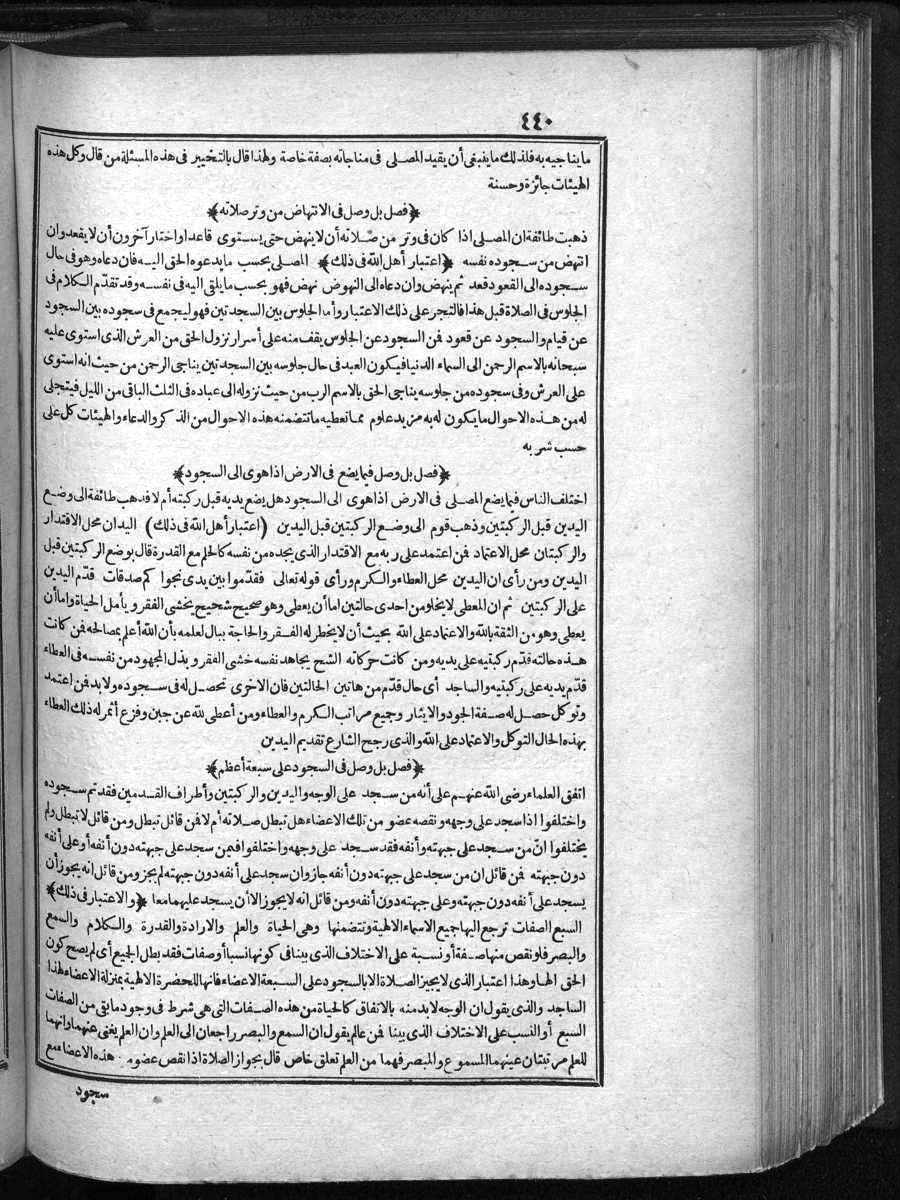 ٤٤٠
ما يناجيه به فلذلك ما ينبغى أن يقيد المصلى فى مناجاته بصفة خاصة ولهذا قال بالتخيير فى هذه المسئلة من قال وكل هذه
الهيئات جائزة وحسنة
﴿فصل بل وصل فى الانتهاض من وتر صلاته﴾
ذهبت طائفة ان المصلى اذا كان فى وتر من صلاته أن لا ينهض حتى يستوى قاعدا واختار آخرون أن لا يقعد وان
انتهض من سجوده نفسه ﴿اعتبار أهل الله فى ذلك﴾ المصلى بحسب ما يدعوه الحق اليه فان دعاه وهو فى حال
سجوده الى القعود قعد ثم ينهض وان دعاه الى النهوض نهض فهو بحسب ما يلقى اليه فى نفسه وقد تقدّم الكلام فى
الجلوس فى الصلاة قبل هذا فالتجر على ذلك الاعتبار وأما الجلوس بين السجدتين فهو ليجمع فى سجوده بين السجود
عن قيام والسجود عن قعود فمن السجود عن الجلوس يقف منه على أسرار نزول الحق من العرش الذى استوى عليه
سبحانه بالاسم الرحمن الى السماء الدنيا فيكون العبد فى حال جلوسه بين السجدتين يناجى الرحمن من حيث انه استوى
على العرش وفى سجوده من جلوسه يناجى الحق بالاسم الرب من حيث نزوله الى عباده فى الثلث الباقى من الليل فيتجلى
له من هذه الاحوال ما يكون له به مزيد علوم مما تعطيه ما تتضمنه هذه الاحوال من الذكر والدعاء والهيئات كل على
حسب شربه
﴿فصل بل وصل فيما يضع فى الارض اذا هوى الى السجود﴾
اختلف الناس فيما يضع المصلى فى الارض اذا هوى الى السجود هل يضع يديه قبل ركبته أم لا فذهب طائفة الى وضع
اليدين قبل الركبتين وذهب قوم الى وضع الركبتين قبل اليدين (اعتبار أهل الله فى ذلك) اليدان محل الاقتدار
والركبتان محل الاعتماد فمن اعتمد على ربه مع الاقتدار الذى يجده من نفسه كالحلم مع القدرة قال بوضع الركبتين قبل
اليدين ومن رأى ان اليدين محل العطاء والكرم ورأى قوله تعالى فقدّموا بين يدى نجواكم صدقات قدّم اليدين
على الركبتين ثم ان المعطى لا يخلو من احدى حالتين اما أن يعطى وهو صحيح شحيح يخشى الفقر ويأمل الحياة واما أن
يعطى وهو من الثقة بالله والاعتماد على الله بحيث أن لا يخطر له الفقر والحاجة ببال لعلمه بأن الله أعلم بمصالحه فمن كانت
هذه حالته قدّم ركبتيه على يديه ومن كانت حركاته الشح يجاهد نفسه خشى الفقر وبذل المجهود من نفسه فى العطاء
قدّم يديه على ركبتيه والساجد أى حال قدّم من هاتين الحالتين فان الاخرى تحصل له فى سجوده ولا بد فمن اعتمد
وتوكل حصل له صفة الجود والايثار وجميع مراتب الكرم والعطاء ومن أعطى لله عن جبن وفزع أثمر له ذلك العطاء
بهذه الحال التوكل والاعتماد على الله والذى رجح الشارع تقديم اليدين
﴿فصل بل وصل فى السجود على سبعة أعظم﴾
اتفق العلماء رضى الله عنهم على أنه من سجد على الوجه واليدين والركبتين وأطراف القدمين فقد تم سجوده
واختلفوا اذا سجد على وجهه ونقصه عضو من تلك الاعضاء هل تبطل صلاته أم لا فمن قائل تبطل ومن قائل لا تبطل ولم
يختلفوا انّ من سجد على جبهته وأنفه فقد سجد على وجهه واختلفوا فمين سجد على جبهته دون أنفه أو على أنفه
دون جبهته فمن قائل ان من سجد على جبهته دون أنفه جاز وان سجد على أنفه دون جبهته لم يجز ومن قائل انه يجوز أن
يسجد على أنفه دون جبهته وعلى جبهته دون أنفه ومن قائل انه لا يجوز الا أن يسجد عليهما معا ﴿والاعتبار فى ذلك﴾
السبع الصفات ترجع اليها جميع الاسماء الالهية وتتضمنها وهى الحياة والعلم والارادة والقدرة والكلام والسمع
والبصر فلو نقص منها صفة أو نسبة على الاختلاف الذى بيننا فى كونها نسبا أو صفات فقد بطل الجميع أى لم يصح كون
الحق الها وهذا اعتبار الذى لا يجيز الصلاة الا بالسجود على السبعة الاعضاء فانها للحضرة الالهية بمنزلة الاعضاء لهذا
الساجد والذى يقول ان الوجه لا بد منه بالاتفاق كالحياة من هذه الصفات التى هى شرط فى وجود ما بقى من الصفات
السبع أو النسب على الاختلاف الذى بيننا فمن عالم يقول ان السمع والبصر راجعان الى العلم وان العلم يغنى عنهما وانهما
للعلم مرتبتان عينهما المسموع والمبصر فهما من العلم تعلق خاص قال بجواز الصلاة اذا نقص عضو من هذه الاعضاء مع
سجود